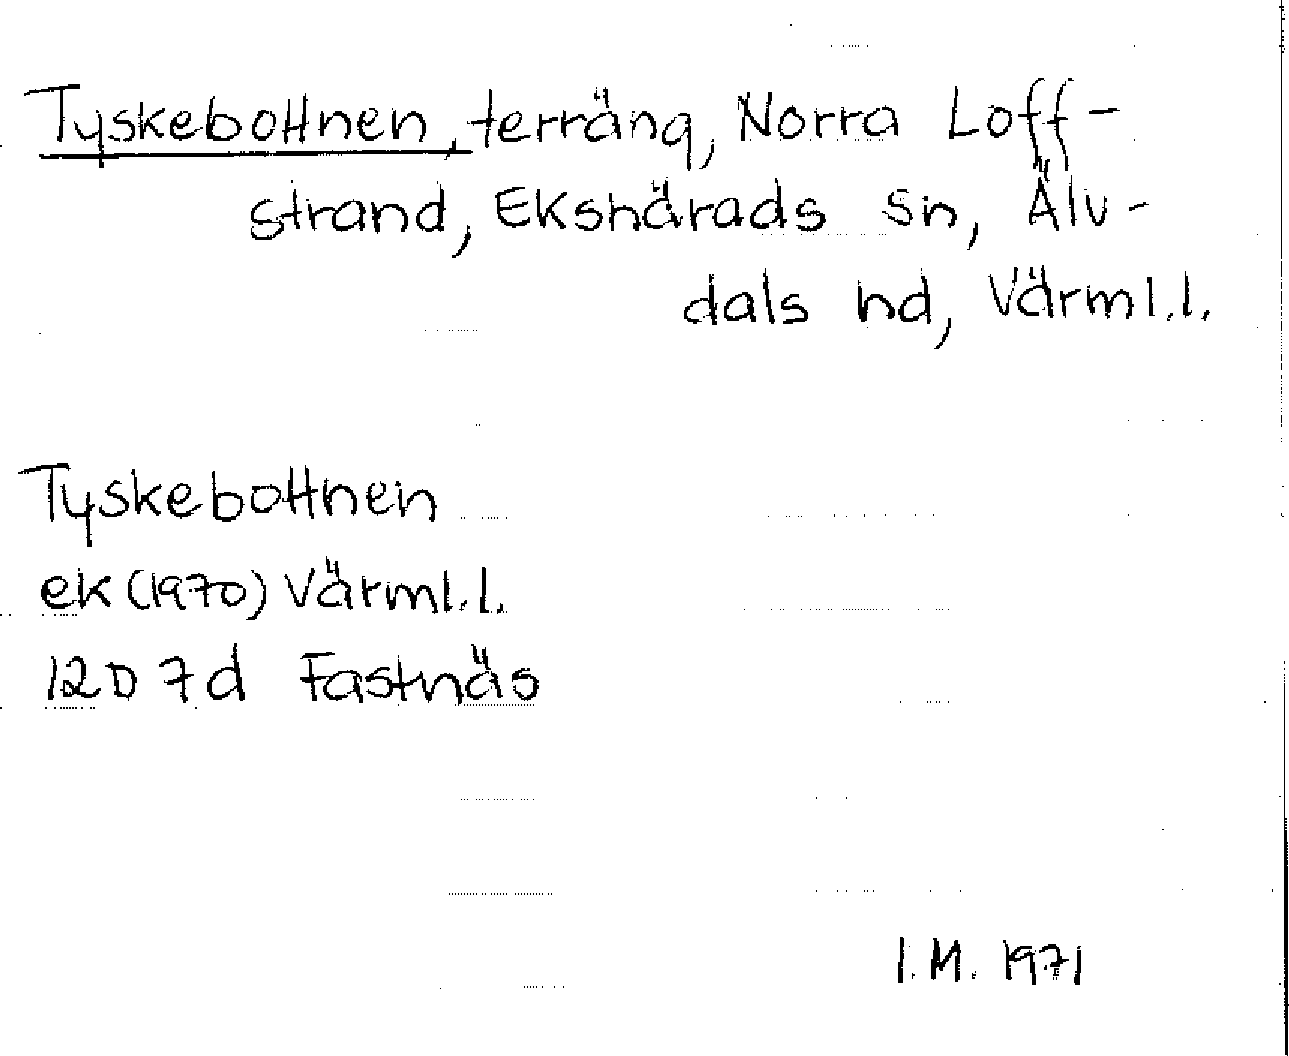 Tyskebottnen, terräng, Norra Loff-
strand, Ekshärads sn, Älv-
dals hd, Värml.l.
Tyskebottnen
ek (1970) Värml.l.
12D 7d Fastnäs
I.M. 1971